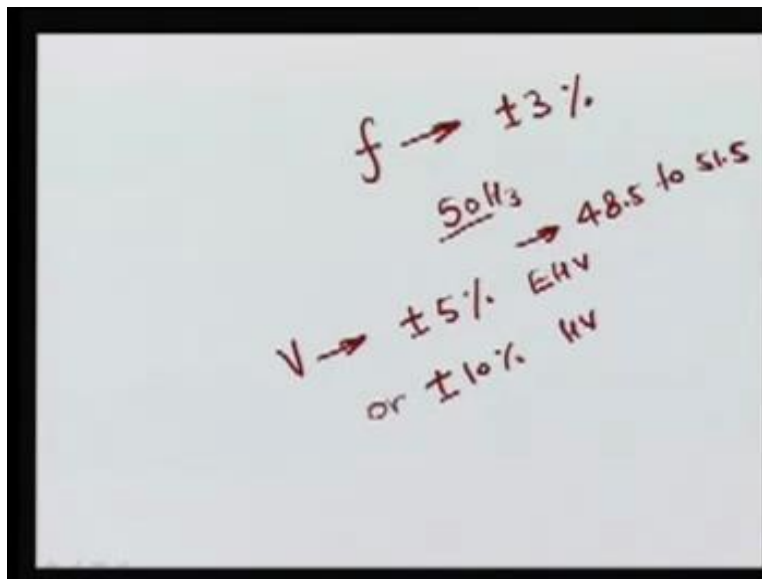 f → ±3%
50Hz
→ 48.5 to 51.5
V → ±5% EHV
or ±10% HV